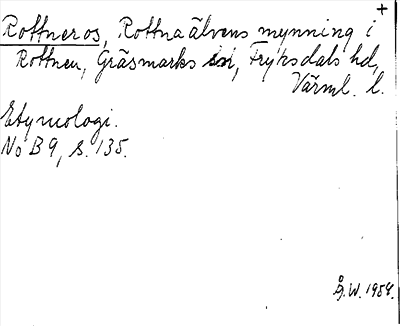 +
Rottneros, Rottnaälvens mynning i
Rottnen, Gräsmarks sn, Fryksdals hd,
Värml. l.
Etymologi.
NoB 9, s. 135.
Å.W. 1954.